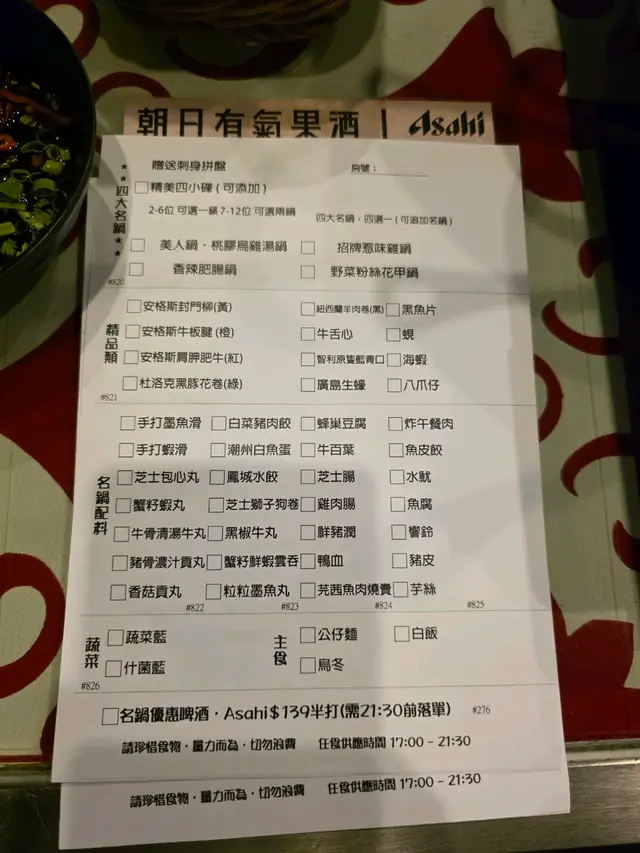 朝日有氣果酒 | Asahi
贈送刺身拼盤 房號：
四大名鍋
精美四小碟 ( 可添加 )
2-6位 可選一鍋 7-12位 可選兩鍋 四大名鍋，四選一 ( 可追加名鍋 )
美人鍋·桃膠烏雞湯鍋 招牌惹味雞鍋
香辣肥腸鍋 野菜粉絲花甲鍋
#820
精品類
安格斯封門柳(黃) 紐西蘭羊肉卷(黑) 黑魚片
安格斯牛板腱 (橙) 牛舌心 蜆
安格斯肩胛肥牛(紅) 智利原隻藍青口 海蝦
杜洛克黑豚花卷(綠) 廣島生蠔 八爪仔
#821
名鍋配料
手打墨魚滑 白菜豬肉餃 蜂巢豆腐 炸午餐肉
手打蝦滑 潮州白魚蛋 牛百葉 魚皮餃
芝士包心丸 鳳城水餃 芝士腸 水魷
蟹籽蝦丸 芝士獅子狗卷 雞肉腸 魚腐
牛骨清湯牛丸 黑椒牛丸 鮮豬潤 響鈴
豬骨濃汁貢丸 蟹籽鮮蝦雲吞 鴨血 豬皮
香菇貢丸 粒粒墨魚丸 芫茜魚肉燒賣 芋絲
#822 #823 #824 #825
蔬菜
蔬菜籃
什菌籃
#826
主食
公仔麵 白飯
烏冬
名鍋優惠啤酒·Asahi$139半打(需21:30前落單) #276
請珍惜食物·量力而為·切勿浪費 任食供應時間 17:00 - 21:30
請珍惜食物·量力而為·切勿浪費 任食供應時間 17:00 - 21:30